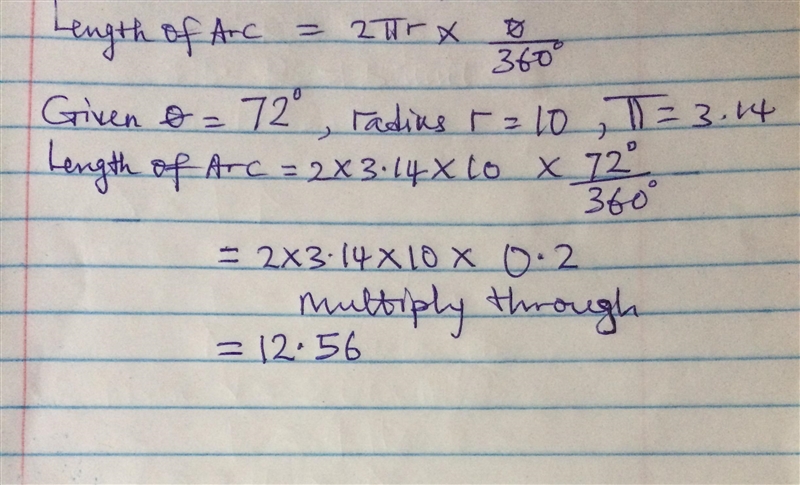 Length of Arc = 2πr × θ/360°
Given θ = 72°, radius r = 10, π = 3.14
Length of Arc = 2×3.14×10 × 72°/360°
= 2×3.14×10 × 0.2
Multiply through
= 12.56